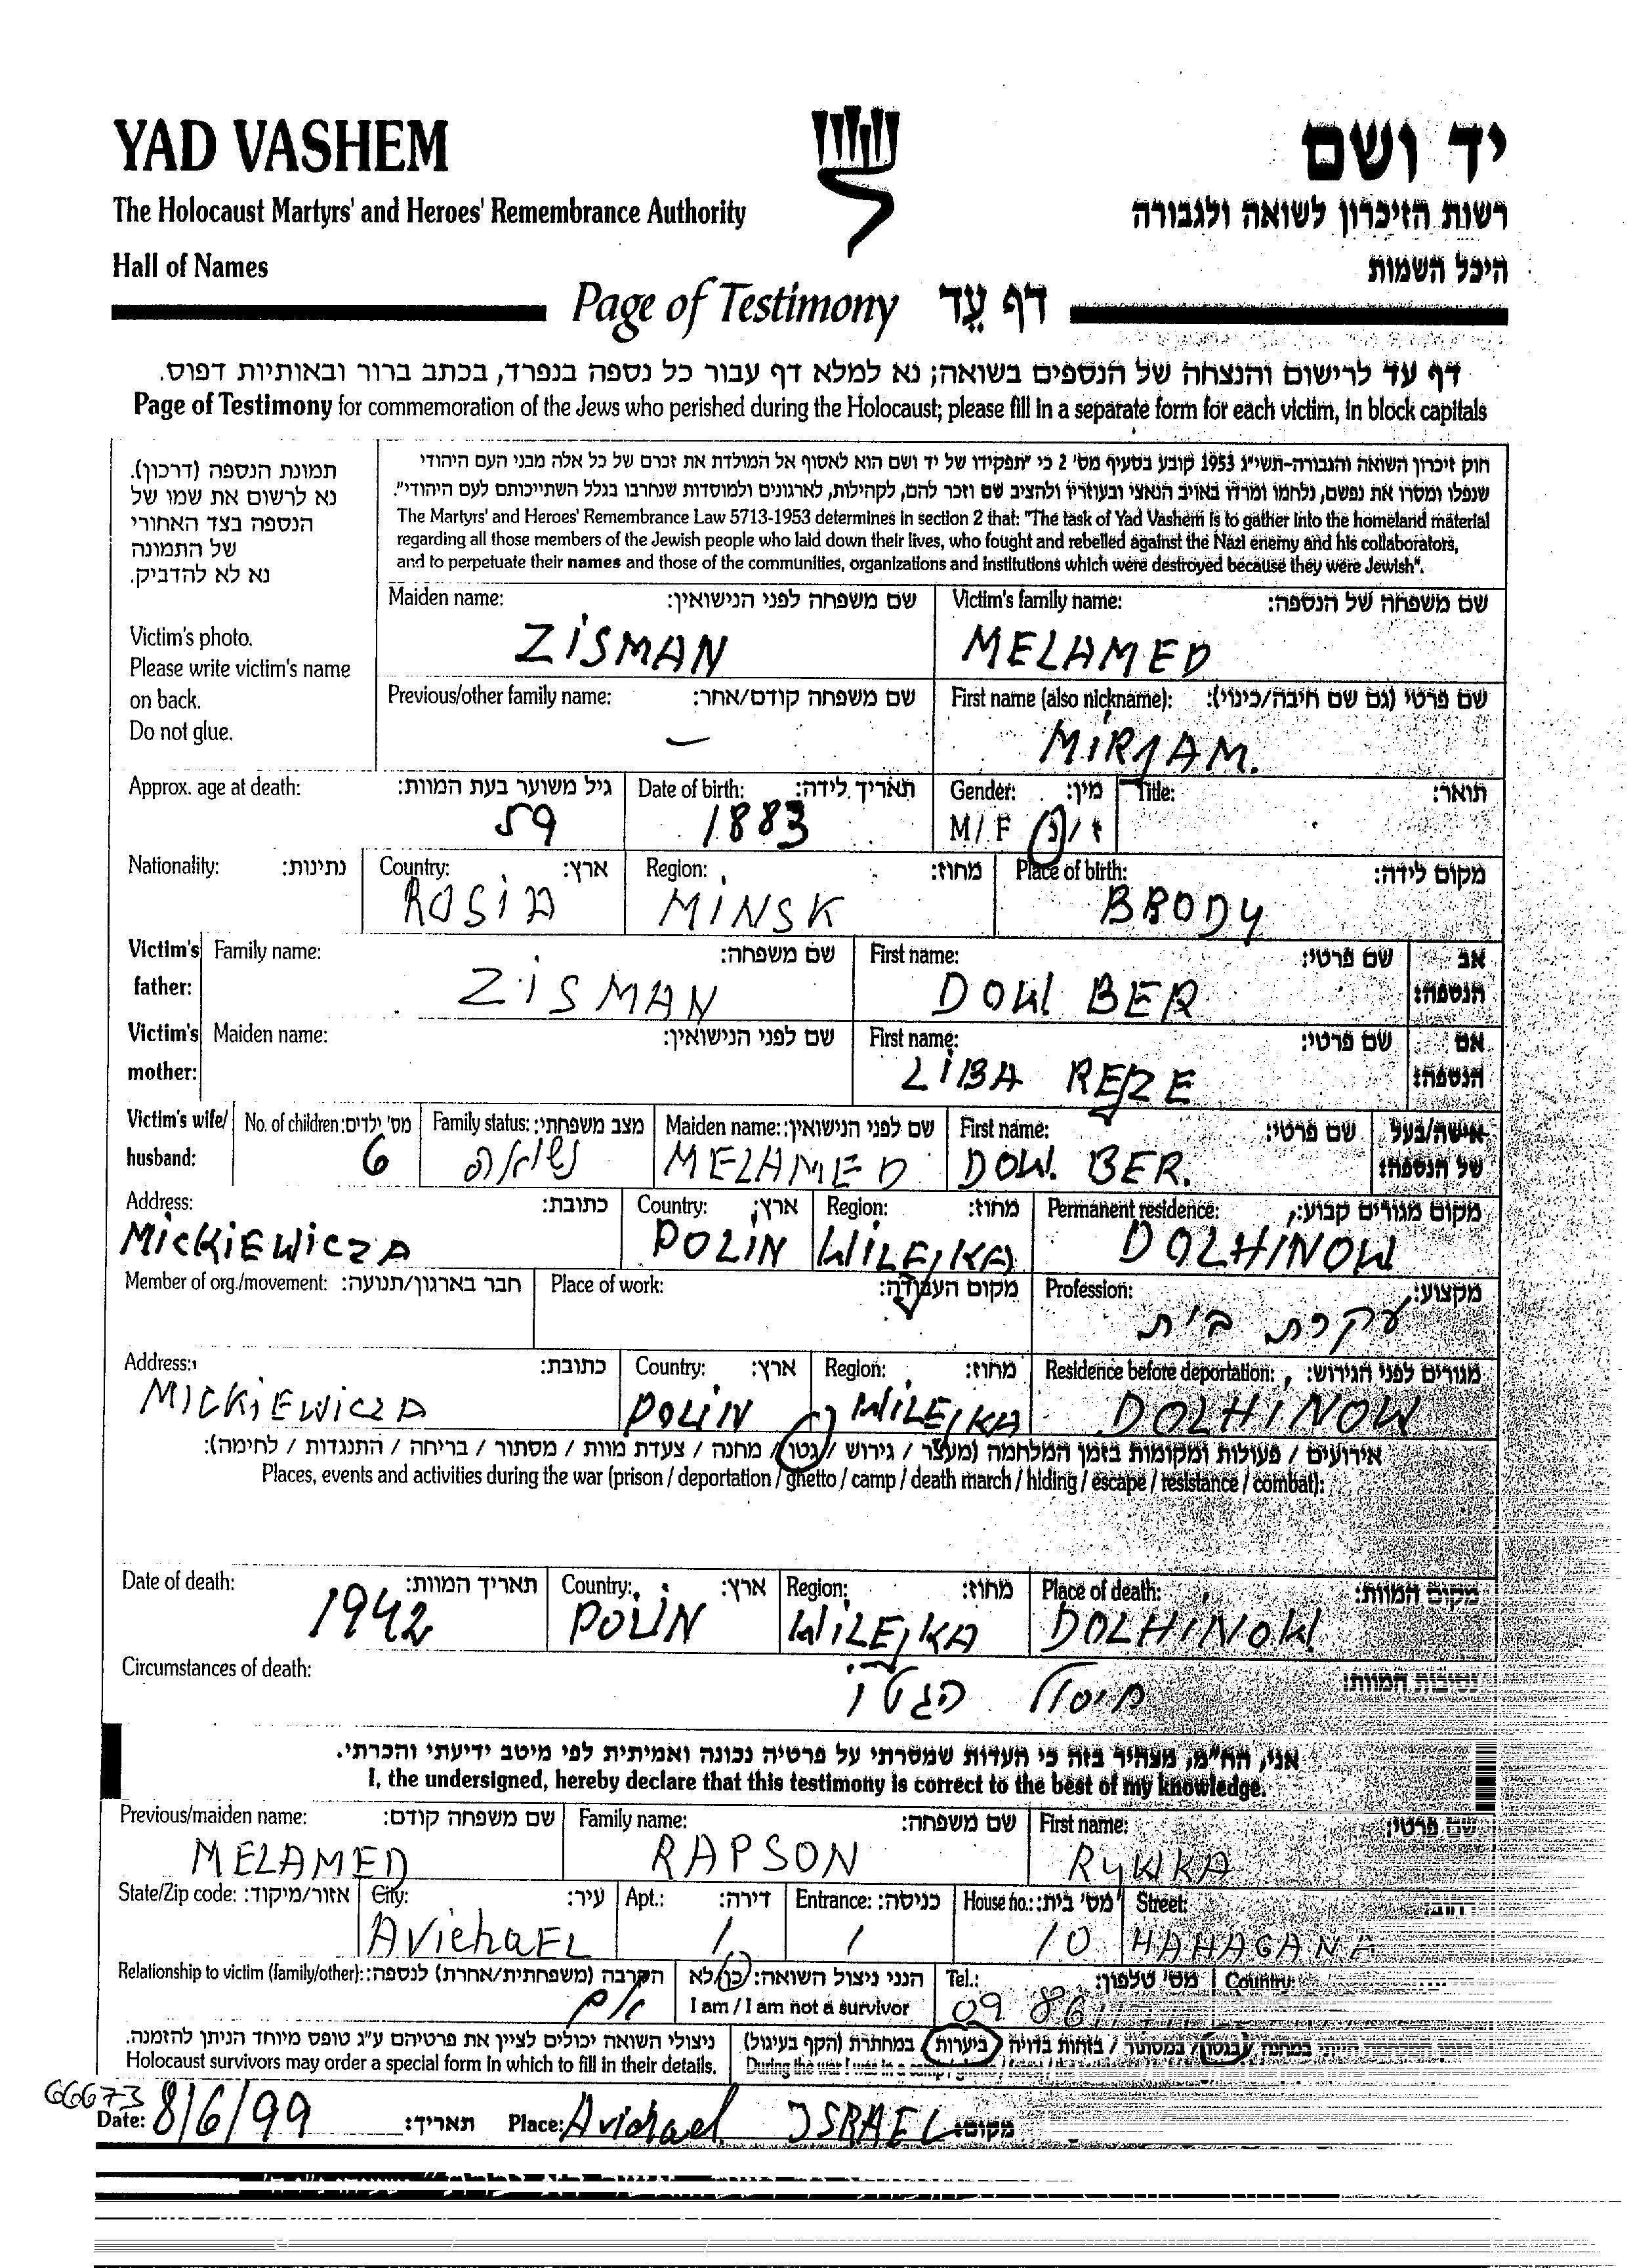 YAD VASHEM
יד ושם
The Holocaust Martyrs' and Heroes' Remembrance Authority
רשות הזיכרון לשואה ולגבורה
Hall of Names
היכל השמות
Page of Testimony דף עד
דף עד לרישום והנצחה של הנספים בשואה; נא למלא דף עבור כל נספה בנפרד, בכתב ברור ובאותיות דפוס.
Page of Testimony for commemoration of the Jews who perished during the Holocaust; please fill in a separate form for each victim, in block capitals
תמונת הנספה (דרכון).
נא לרשום את שמו של
הנספה בצד האחורי
של התמונה
נא לא להדביק.
Victim's photo.
Please write victim's name
on back.
Do not glue.
חוק זיכרון השואה והגבורה-תשי"ג 1953 קובע בסעיף מס' 2 כי "תפקידו של יד ושם הוא לאסוף אל המולדת את זכרם של כל אלה מבני העם היהודי
שנפלו ומסרו את נפשם, נלחמו ומרדו באויב הנאצי ובעוזריו ולהציב שם וזכר להם, לקהילות, לארגונים ולמוסדות שנחרבו בגלל השתייכותם לעם היהודי".
The Martyrs' and Heroes' Remembrance Law 5713-1953 determines in section 2 that: "The task of Yad Vashem is to gather into the homeland material
regarding all those members of the Jewish people who laid down their lives, who fought and rebelled against the Nazi enemy and his collaborators,
and to perpetuate their names and those of the communities, organizations and institutions which were destroyed because they were Jewish".
Maiden name: שם משפחה לפני הנישואין: Victim's family name: שם משפחה של הנספה:
ZISMAN MELAMED
Previous/other family name: שם משפחה קודם/אחר: First name (also nickname): שם פרטי (גם שם חיבה/כינוי):
– MIRJAM.
Approx. age at death: גיל משוער בעת המוות: Date of birth: תאריך לידה: Gender: מין: Title: תואר:
59 1883 M/F ז/נ
Nationality: נתינות: Country: ארץ: Region: מחוז: Place of birth: מקום לידה:
ROSIA MINSK BRODY
Victim's father: Family name: שם משפחה: First name: שם פרטי: אב הנספה:
ZISMAN DOW BER
Victim's mother: Maiden name: שם לפני הנישואין: First name: שם פרטי: אם הנספה:
LIBA REJZE
Victim's wife/husband: No. of children: מס' ילדים: Family status: מצב משפחתי: Maiden name: שם לפני הנישואין: First name: שם פרטי: אישה/בעל של הנספה:
6 נשואה MELAMED DOW. BER.
Address: כתובת: Country: ארץ: Region: מחוז: Permanent residence: מקום מגורים קבוע:
MICKIEWICZA POLIN WILEJKA DOLHINOW
Member of org./movement: חבר בארגון/תנועה: Place of work: מקום העבודה: Profession: מקצוע:
עקרת בית
Address: כתובת: Country: ארץ: Region: מחוז: Residence before deportation: מגורים לפני הגירוש:
MICKIEWICZA POLIN WILEJKA DOLHINOW
אירועים / פעולות ומקומות בזמן המלחמה (מעצר / גירוש / גטו / מחנה / צעדת מוות / מסתור / בריחה / התנגדות / לחימה):
Places, events and activities during the war (prison / deportation / ghetto / camp / death march / hiding / escape / resistance / combat):
Date of death: תאריך המוות: Country: ארץ: Region: מחוז: Place of death: מקום המוות:
1942 POLIN WILEJKA DOLHINOW
Circumstances of death: נסיבות המוות:
חיסול הגטו
אני, הח"מ, מצהיר בזה כי העדות שמסרתי על פרטיה נכונה ואמיתית לפי מיטב ידיעתי והכרתי.
I, the undersigned, hereby declare that this testimony is correct to the best of my knowledge.
Previous/maiden name: שם משפחה קודם: Family name: שם משפחה: First name: שם פרטי:
MELAMED RAPSON RYWKA
State/Zip code: אזור/מיקוד: City: עיר: Apt.: דירה: Entrance: כניסה: House no.: מס' בית: Street:
AVichaEL / / 10 HAHAGANA
Relationship to victim (family/other): הקרבה (משפחתית/אחרת) לנספה: הנני ניצול השואה: כן/לא Tel.: מס' טלפון: Country:
אם I am / I am not a survivor 09 86
ניצולי השואה יכולים לציין את פרטיהם ע"ג טופס מיוחד הניתן להזמנה. בזמן המלחמה הייתי במחנה / בגטו / במסתור / בזהות בדויה / ביערות / במחתרת (הקף בעיגול)
Holocaust survivors may order a special form in which to fill in their details. During the war I was in a camp / ghetto / forest
66673
Date: 8/6/99 תאריך: Place: Avichael ISRAEL מקום: